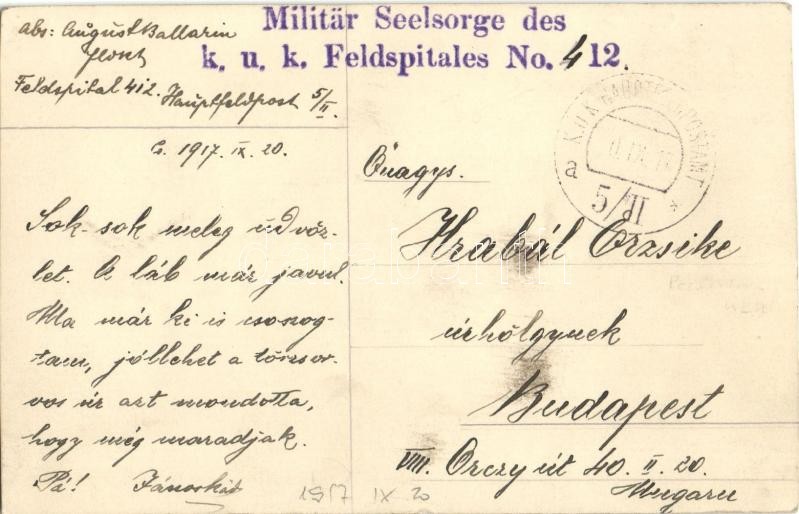 Militär Seelsorge des
k. u. k. Feldspitales No. 412.
abs: August Ballarin
Feldspital 412. Hauptfeldpost 5/II.
1917. IX. 20.
K.u.K. HAUPTFELDPOSTAMT
a 5/II *
Sok-sok meleg üdvöz-
let. A láb már javul.
Ma már ki is csoszog-
tam, jóllehet a törzsor-
vos úr azt mondotta,
hogy még maradjak.
Pá! Jánoskád
Őnagys.
Hrabál Orzsike
úrhölgynek
Budapest
VIII. Orczy út 40. II. 20.
Ungarn
1917 IX 20